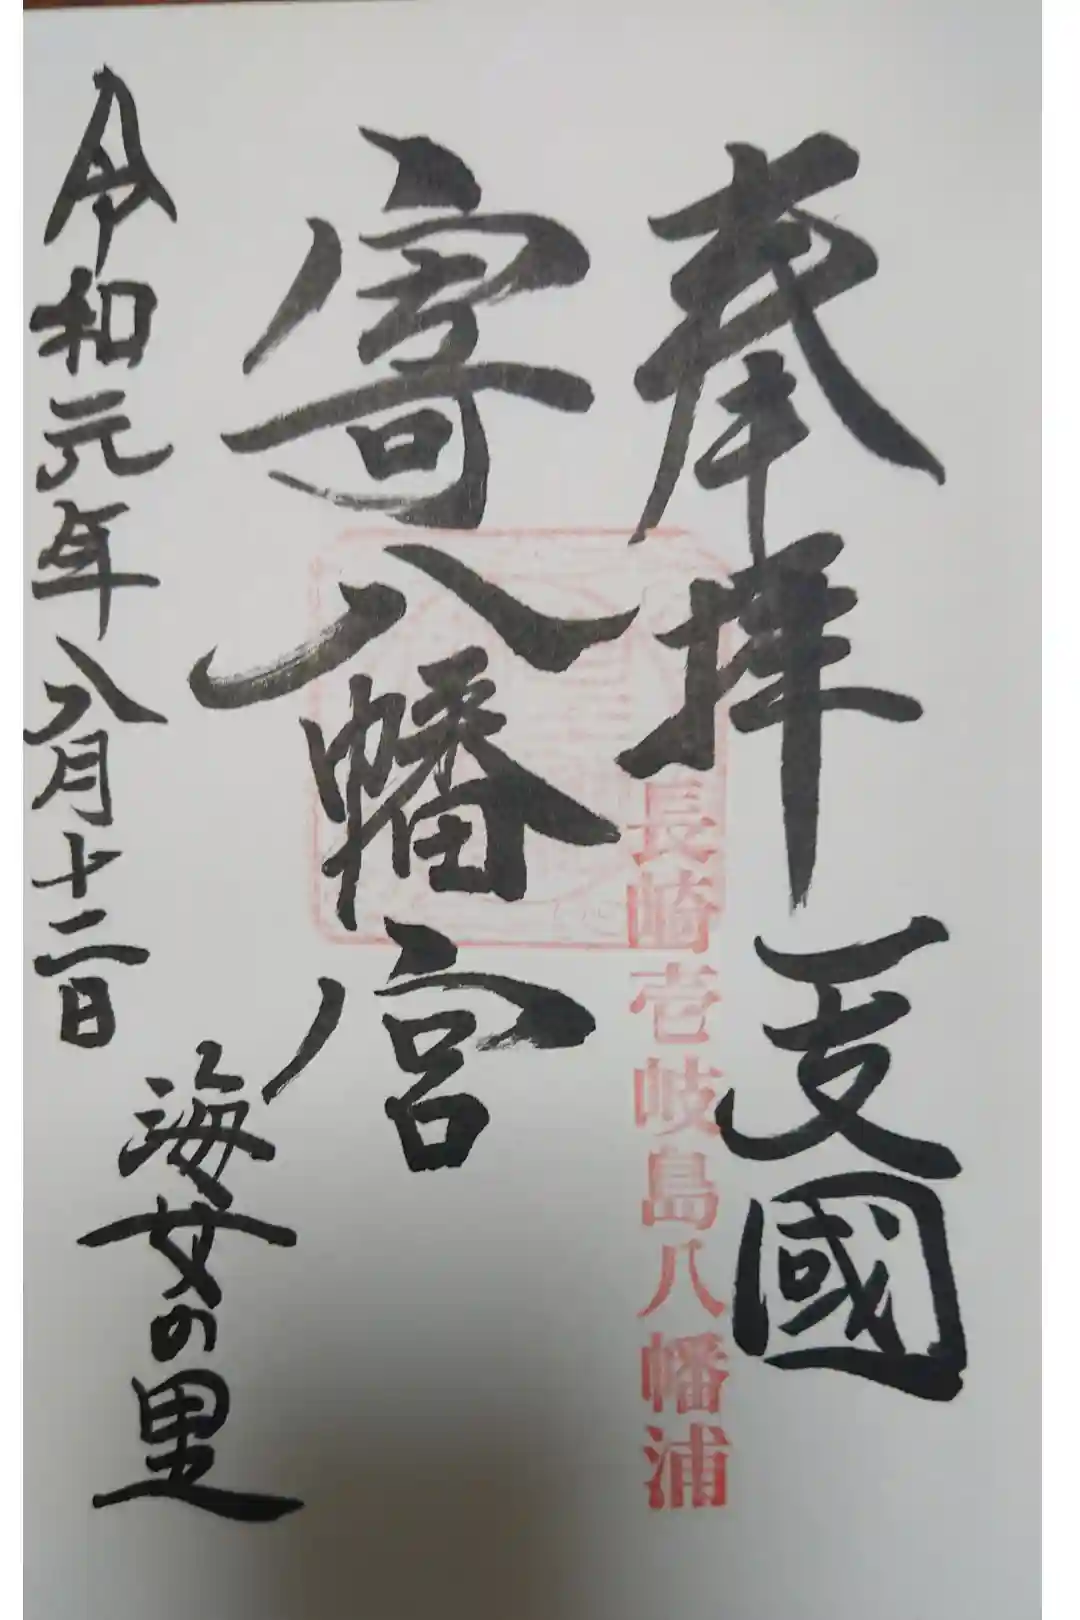 奉拝 一支國
長崎壱岐島八幡浦
寄八幡宮
令和元年八月十二日
海女の里